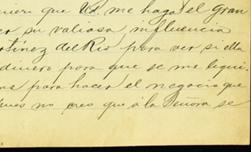 que Ud. me haga el gran
er su valiosa influencia
tinez del Rio para ver si ella
dinero para que se me
para hacer el negocio que
no creo que á la Señora se